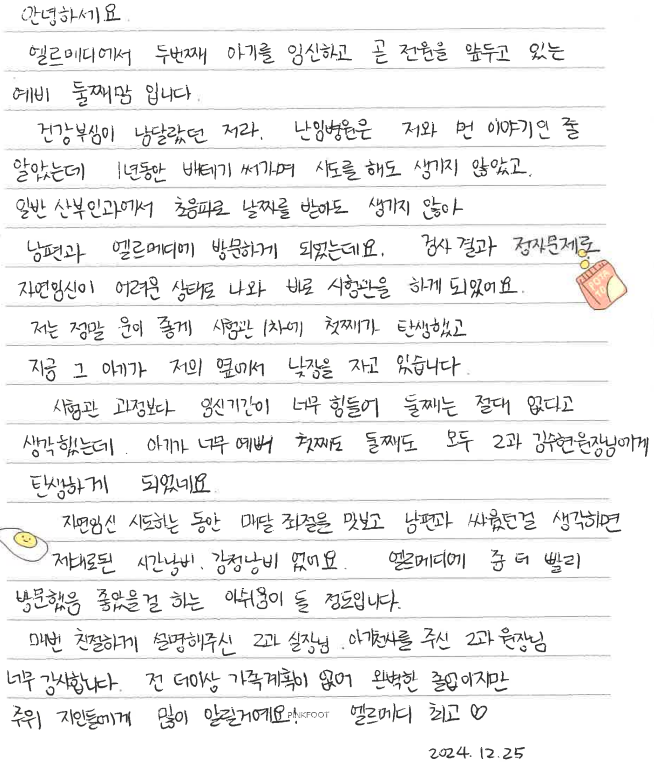 안녕하세요.
엘르메디에서 두번째 아기를 임신하고 곧 전원을 앞두고 있는
예비 둘째맘 입니다.
건강부심이 남달랐던 저라, 난임병원은 저와 먼 이야기인 줄
알았는데 1년동안 배테기 써가며 시도를 해도 생기지 않았고,
일반 산부인과에서 초음파로 날짜를 받아도 생기지 않아
남편과 엘르메디에 방문하게 되었는데요. 검사 결과 정자문제로
자연임신이 어려운 상태로 나와 바로 시험관을 하게 되었어요.
POTATO
저는 정말 운이 좋게 시험관 1차에 첫째가 탄생했고
지금 그 아기가 저의 옆에서 낮잠을 자고 있습니다.
시험관 과정보다 임신기간이 너무 힘들어 둘째는 절대 없다고
생각했는데. 아기가 너무 예뻐 첫째도 둘째도 모두 2과 김수현원장님에게
탄생하게 되었네요.
자연임신 시도하는 동안 매달 좌절을 맛보고 남편과 싸웠던걸 생각하면
제대로된 시간낭비, 감정낭비 였어요. 엘르메디에 좀 더 빨리
방문했음 좋았을걸 하는 아쉬움이 들 정도입니다.
매번 친절하게 설명해주신 2과 실장님, 아기천사를 주신 2과 원장님
너무 감사합니다. 전 더이상 가족계획이 없어 완벽한 졸업이지만
주위 지인들에게 많이 알릴거예요! 엘르메디 최고♡
PINKFOOT
2024.12.25